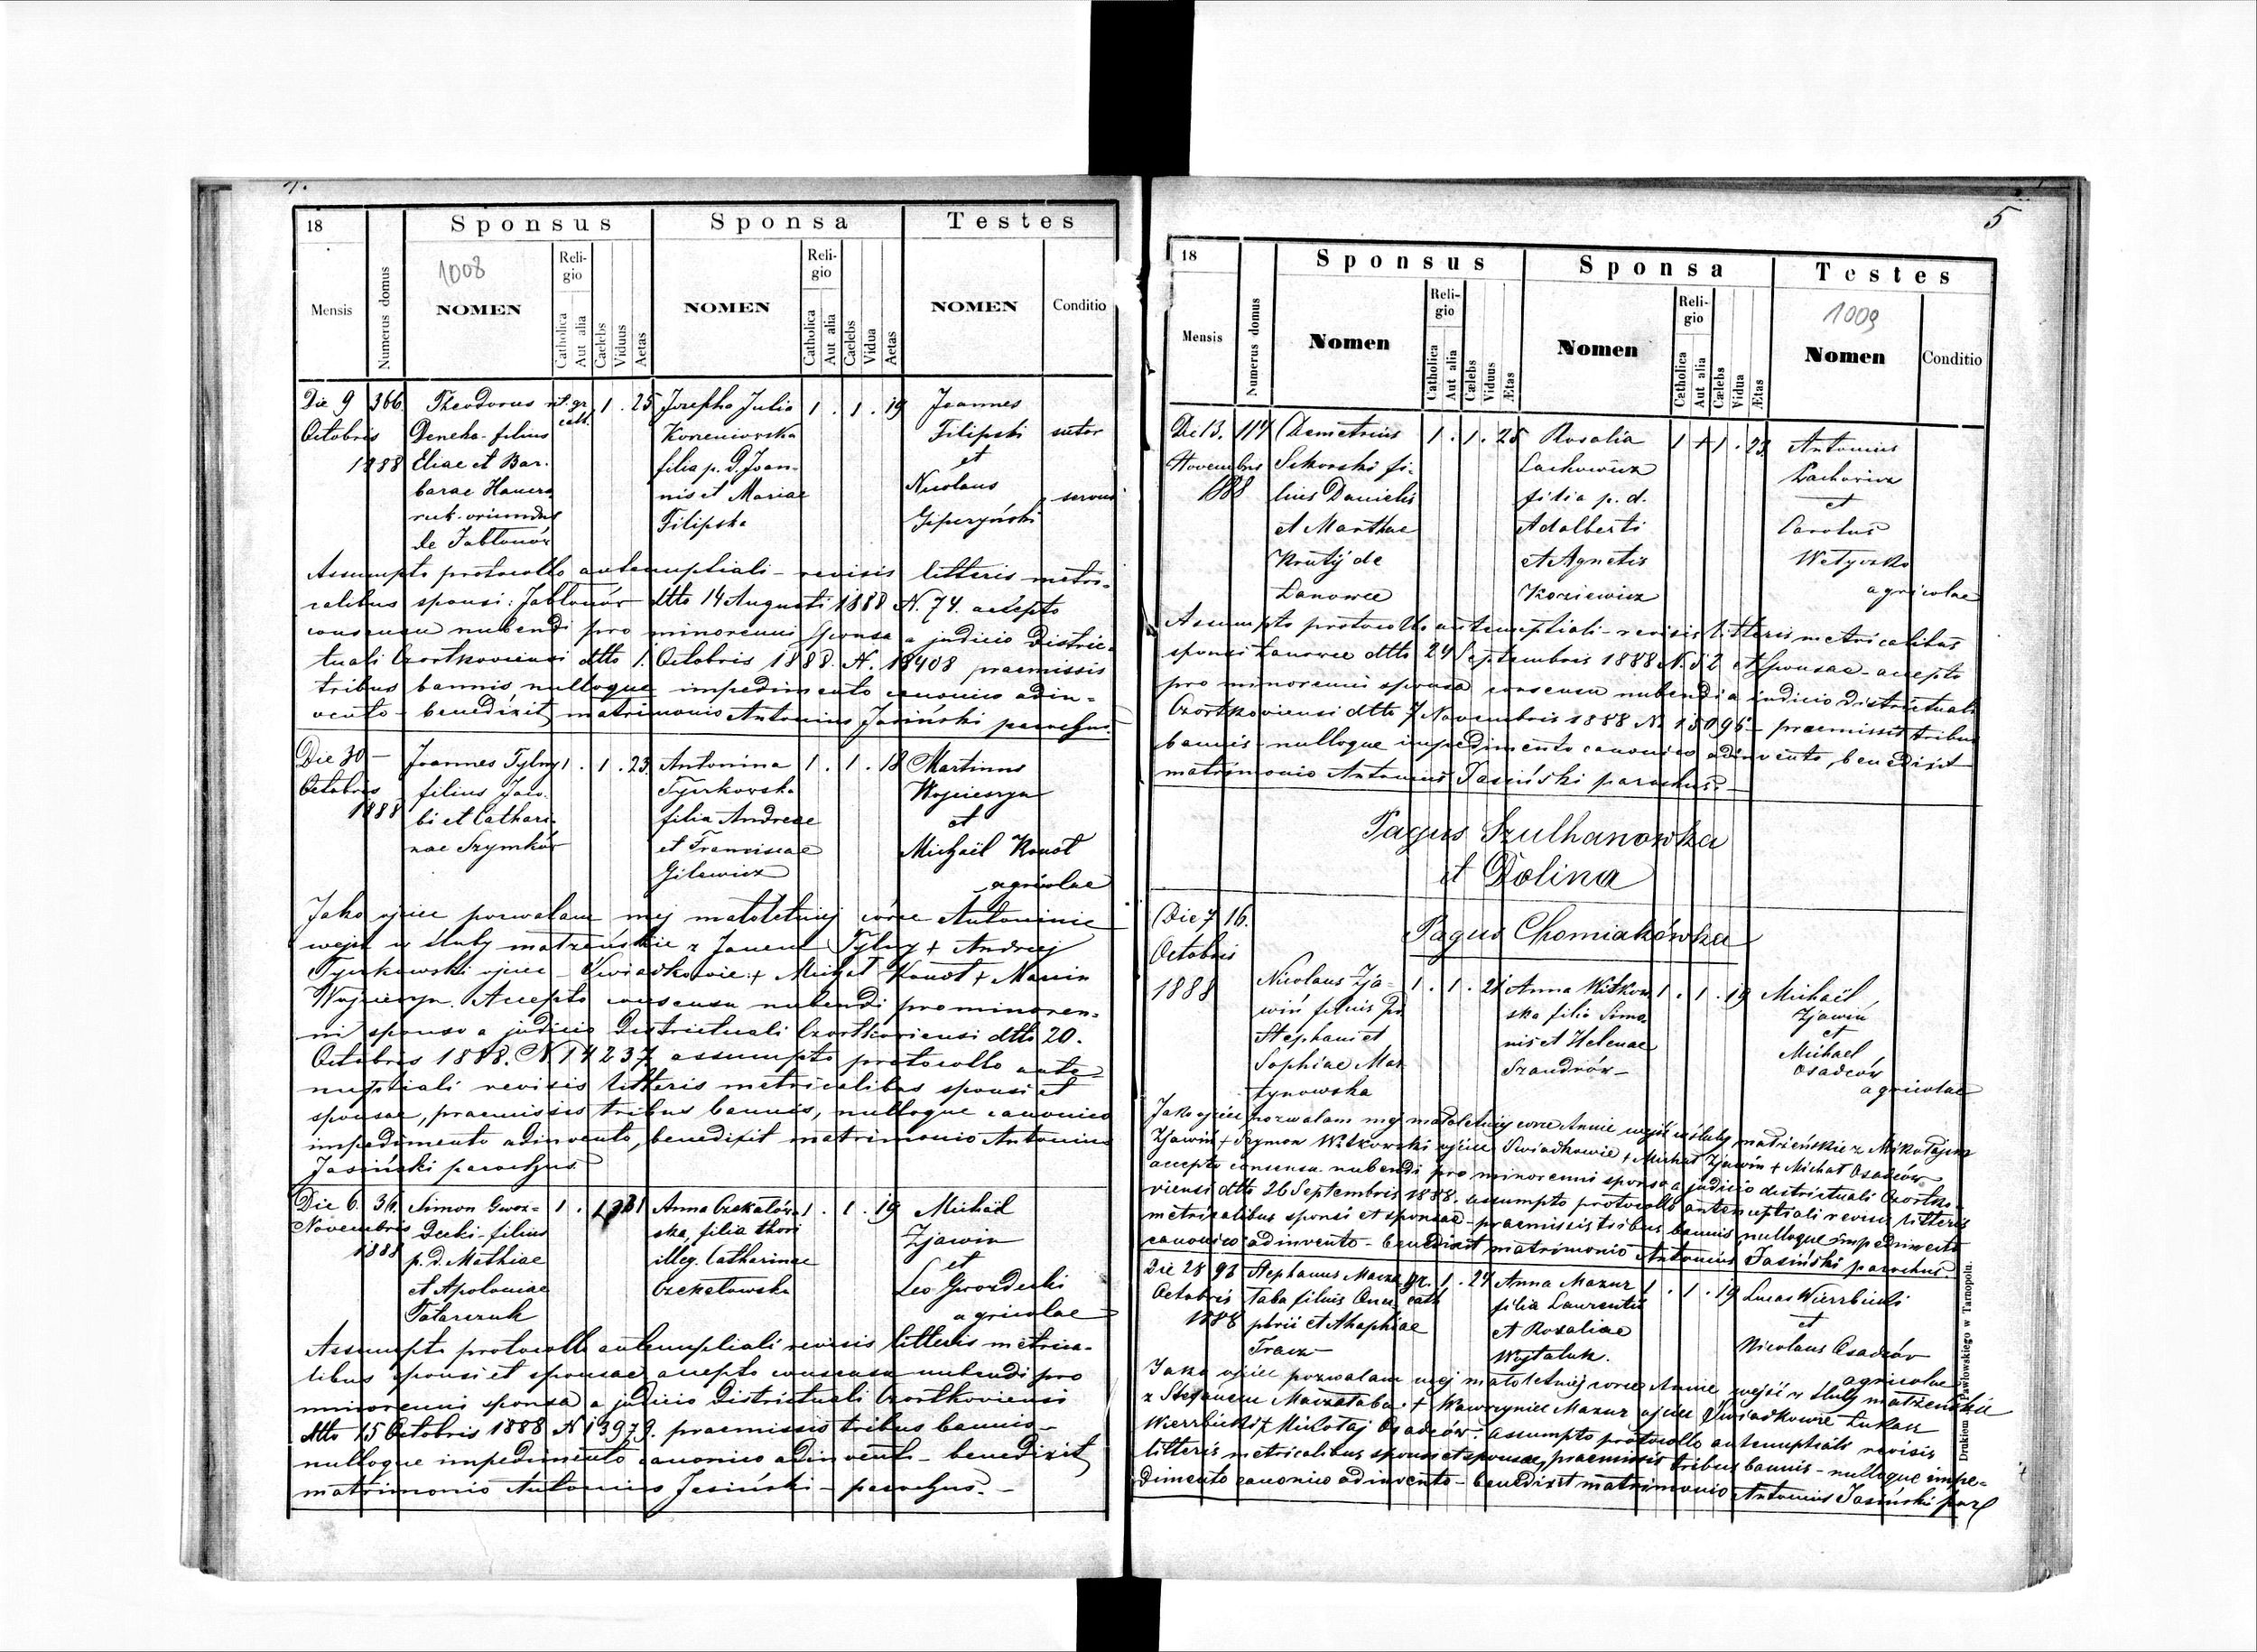 18 Sponsus Sponsa Testes
1008
Mensis Numerus domus NOMEN Religio Catholica Aut alia Caelebs Viduus Aetas NOMEN Religio Catholica Aut alia Caelebs Vidua Aetas NOMEN Conditio
Die 9 366 Theodorus rit. gr. cath. 1 . 25 Josepha Julia 1 . 1 . 19 Joannes
Octobris Deneka - filius Korzeniowska Filipski sutor
1888 Eliae et Bar- filia p. d. Joan- et
barae Hawera nis et Mariae Nicolaus servus
rut. oriundus Filipska
de Jabłonów
Assumpto protocollo antenuptiali - revisis litteris metri-
calibus sponsi: Jabłonów dtto 14 Augusti 1888 N. 74. accepto
consensu nubendi pro minorenni sponsa a judicio Distric-
tuali Czortkoviensi dtto 1. Octobris 1888. N. praemissis
tribus bannis, nulloque impedimento canonico adin-
vento - benedixit matrimonio Antonius Jasiński parochus.
Die 30 - Joannes Tylny 1 . 1 . 23 Antonina 1 . 1 . 18 Martinus
Octobris filius Jaco- Tyrkowska
1888 bi et Cathari- filia Andreae et
nae Szymków et Franciscae Michaël
Gilewicz agricolae
Jako ojciec pozwalam mej małoletniej córce Antoninie
wejść w śluby małżeńskie z Janem Tylny + Andrzej
Tyrkowski ojciec - Świadkowie: + Michał + Marcin
Accepto consensu nubendi pro minoren-
ni sponso a judicio Districtuali Czortkoviensi dtto 20.
Octobris 1888. N 14237 assumpto protocollo ante-
nuptiali revisis litteris metricalibus sponsi et
sponsae, praemissis tribus bannis, nulloque canonico
impedimento adinvento, benedixit matrimonio Antonius
Jasiński parochus
Die 6. 36. Simon Gwoz- 1 . 1 Anna Czekałow- 1 . 1 . 19 Michaël
Novembris decki - filius ska, filia thori Zjawin
1888 p. d. Mathiae illeg. Catharinae et
et Apoloniae Czekałowska Leo Gwozdecki
Tatarczuk agricolae
Assumpto protocollo antenuptiali revisis litteris metrica-
libus sponsi et sponsae accepto consensu nubendi pro
minorenni sponsa a judicio Districtuali Czortkoviensi
dtto 15 Octobris 1888 N 13979. praemissis tribus bannis -
nulloque impedimento canonico adinvento - benedixit
matrimonio Antonius Jasiński - parochus. -
5
18 Sponsus Sponsa Testes
1009
Mensis Numerus domus Nomen Religio Catholica Aut alia Cælebs Viduus Ætas Nomen Religio Catholica Aut alia Cælebs Vidua Ætas Nomen Conditio
Die 13. 117 Demetrius 1 . 1 . 25 Rosalia 1 1 . 23 Antonius
Novembris Sikorski fi- Lachowicz Lachowicz
1888 lius Danielis filia p. d. et
et Marthae Adalberti Carolus
Krutÿ de et Agnetis
Łanowce Koziewicz agricolae
Assumpto protocollo antenuptiali - revisis litteris metricalibus
sponsi Łanowce dtto 24 Septembris 1888 N. 52 et sponsae - accepto
pro minorenni sponsa consensu nubendi a judicio districtuali
Czortkoviensi dtto 7 Novembris 1888 N 15096 - praemissis tribus
bannis - nulloque impedimento canonico adinvento, benedixit
matrimonio Antonius Jasiński parochus. -
Pagus Szulhanowka
et Dolina
Die 7 16. Pagus Chomiakówka
Octobris
1888 Nicolaus Zja- 1 . 1 . 21 Anna Witkow- 1 . 1 . 19 Michaël
wiń filius ska filia Simo- Zjawin
Stephani et nis et Helenae et
Sophiae Mar- Szandrów - Michael
tynowska Osadców
agricolae
Jako ojciec pozwalam mej małoletniej córce Annie wejść w śluby małżeńskie z Mikołajem
Zjawiń + Szymon Witkowski ojciec Świadkowie + Michał Zjawiń + Michał Osadców
accepto consensu nubendi pro minorenni sponsa a judicio districtuali Czortko-
viensi dtto 26 Septembris 1888. assumpto protocollo antenuptiali revisis litteris
metricalibus sponsi et sponsae - praemissis tribus bannis nulloque impedimento
canonico adinvento - benedixit matrimonio Antonius Jasiński parochus.
Die 28 93 Stephanus Macza- gr. cath 1 . 24 Anna Mazur 1 . 1 . 19 Lucas Wierzbicki
Octobris łaba filius Onu- filia Laurentii et
1888 phrii et Ahaphiae et Rozaliae Nicolaus Osadców
Tracz - Wojtaluk. agricolae
Jako ojciec pozwalam mej małoletniej córce Annie wejść w śluby małżeńskie
z Stefanem Maczałaba: + Wawrzyniec Mazur ojciec Świadkowie Łukasz
Wierzbicki + Mikołaj Osadców: assumpto protocollo antenuptiali revisis
litteris metricalibus sponsi et sponsae, praemissis tribus bannis - nulloque impe-
dimento canonico adinvento - benedixit matrimonio Antonius Jasiński par
Drukiem Pawłowskiego w Tarnopolu.